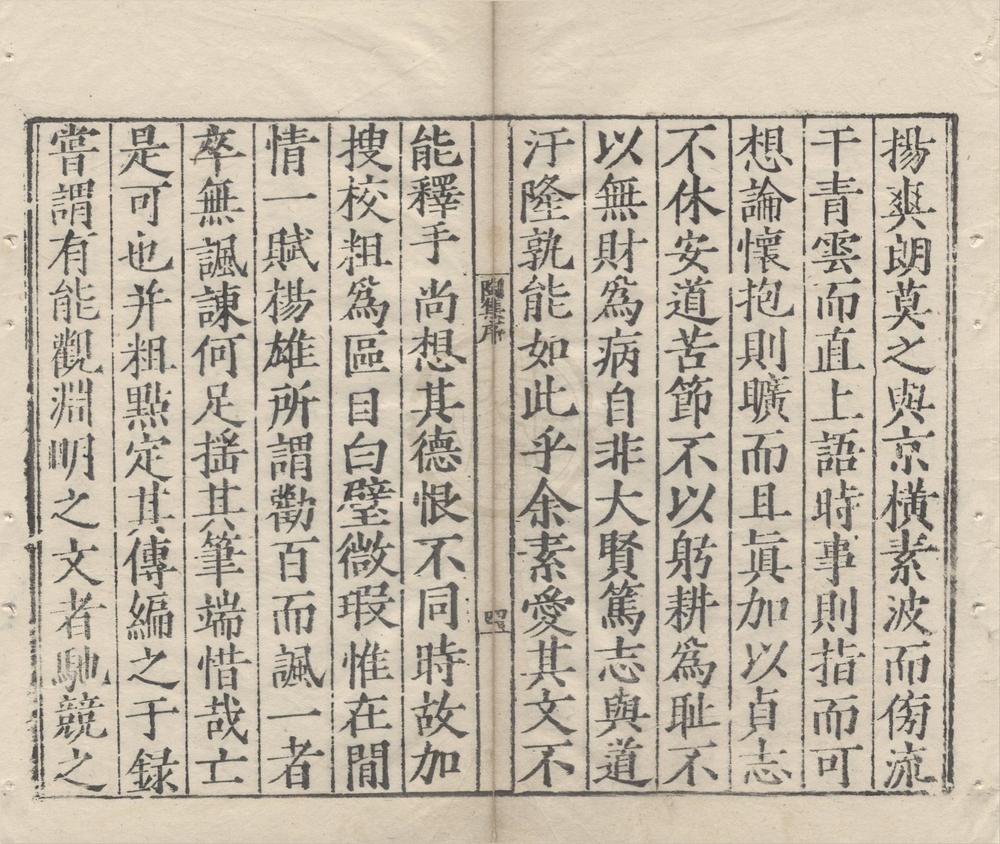 揚爽朗莫之與京橫素波而傍流
干青雲而直上語時事則指而可
想論懷抱則曠而且眞加以貞志
不休安道苦節不以躬耕爲耻不
以無財爲病自非大賢篤志與道
汙隆孰能如此乎余素愛其文不
陶集序
四
能釋手尚想其德恨不同時故加
搜校粗爲區目白璧微瑕惟在閒
情一賦楊雄所謂勸百而諷一者
卒無諷諫何足揺其筆端惜哉亡
是可也并粗點定其傳編之于録
嘗謂有能觀淵明之文者馳競之